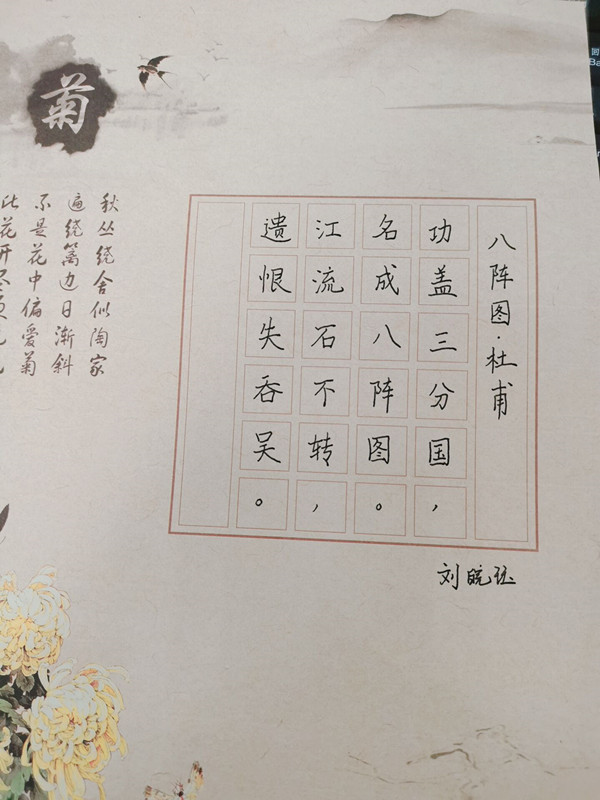 八阵图·杜甫
功盖三分国，
名成八阵图。
江流石不转，
遗恨失吞吴。
刘皖珏
菊
秋丛绕舍似陶家
遍绕篱边日渐斜
不是花中偏爱菊
此花开尽更无花